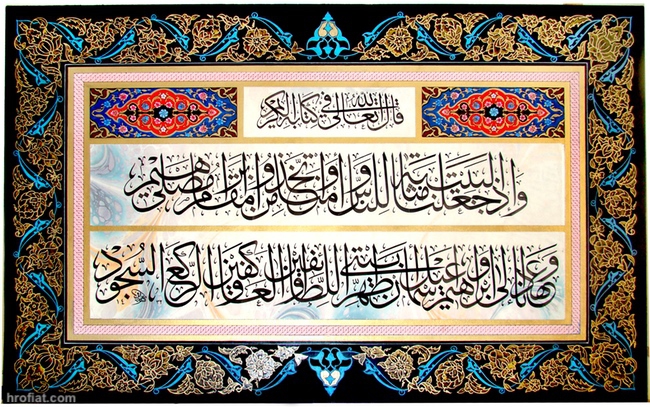 قال الله تعالى في كتابه الكريم
وإذ جعلنا البيت مثابة للناس وأمنا واتخذوا من مقام إبراهيم مصلى
وعهدنا إلى إبراهيم وإسماعيل أن طهرا بيتي للطائفين والعاكفين والركع السجود
hrofiat.com